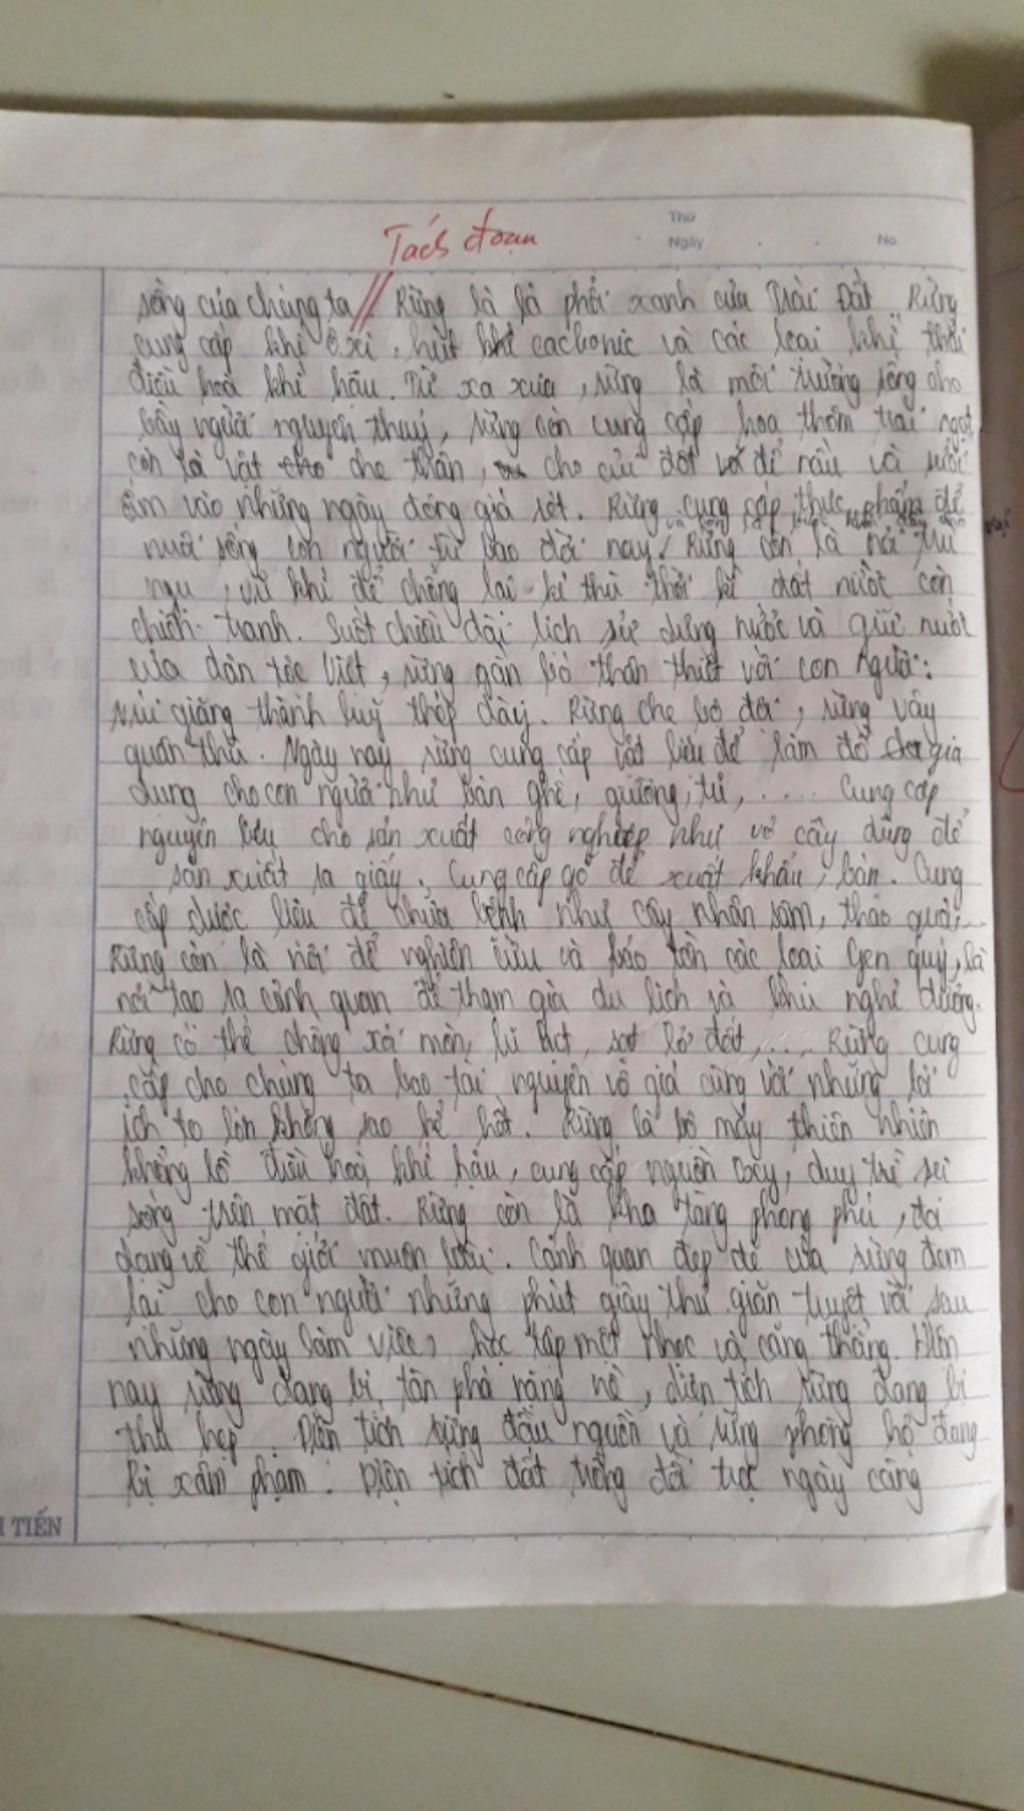 Tách đoạn
Thứ
Ngày
No.
sống của chúng ta // Rừng là lá phổi xanh của Trái Đất. Rừng
cung cấp khí ôxi, hút khí cacbonic và các loại khí thải
điều hoà khí hậu. Từ xa xưa, rừng là môi trường sống cho
bầy người nguyên thuỷ, rừng còn cung cấp hoa thơm trái ngọt
còn là vật che thân, cho củi đốt để nấu và sưởi
ấm vào những ngày đông giá rét. Rừng cung cấp thực phẩm để
nuôi sống con người từ bao đời nay. Rừng còn là nơi trú
ngụ, vũ khí để chống lại kẻ thù thời kì đất nước còn
chiến tranh. Suốt chiều dài lịch sử dựng nước và giữ nước
của dân tộc Việt, rừng gắn bó thân thiết với con người:
Núi giăng thành luỹ thép dày. Rừng che bộ đội, rừng vây
quân thù. Ngày nay rừng cung cấp vật liệu để làm đồ gia
dụng cho con người như bàn ghế, giường, tủ, ..... Cung cấp
nguyên liệu cho sản xuất công nghiệp như vỏ cây dùng để
sản xuất ra giấy. Cung cấp gỗ để xuất khẩu, bán. Cung
cấp dược liệu để chữa bệnh như cây nhân sâm, thảo quả,...
Rừng còn là nơi để nghiên cứu và bảo tồn các loại gen quý, là
nơi tạo ra cảnh quan để tham gia du lịch và khu nghỉ dưỡng.
Rừng có thể chống xói mòn, lũ lụt, sạt lở đất,.... Rừng cung
cấp cho chúng ta bao tài nguyên vô giá cùng với những lợi
ích to lớn không sao kể hết. Rừng là bộ máy thiên nhiên
khổng lồ điều hoà khí hậu, cung cấp nguồn oxy, duy trì sự
sống trên mặt đất. Rừng còn là kho tàng phong phú, đa
dạng về thế giới muôn loài. Cảnh quan đẹp đẽ của rừng đem
lại cho con người những phút giây thư giãn tuyệt vời sau
những ngày làm việc, học tập mệt nhọc và căng thẳng. Hiện
nay rừng đang bị tàn phá nặng nề, diện tích rừng đang bị
thu hẹp. Diện tích rừng đầu nguồn và rừng phòng hộ đang
bị xâm phạm. Diện tích đất trống đồi trọc ngày càng
TIẾN